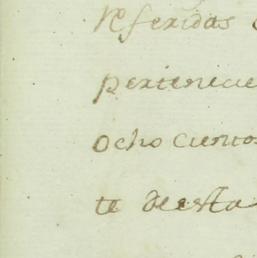 referidas
pertenecie
ocho ciento
te de esta